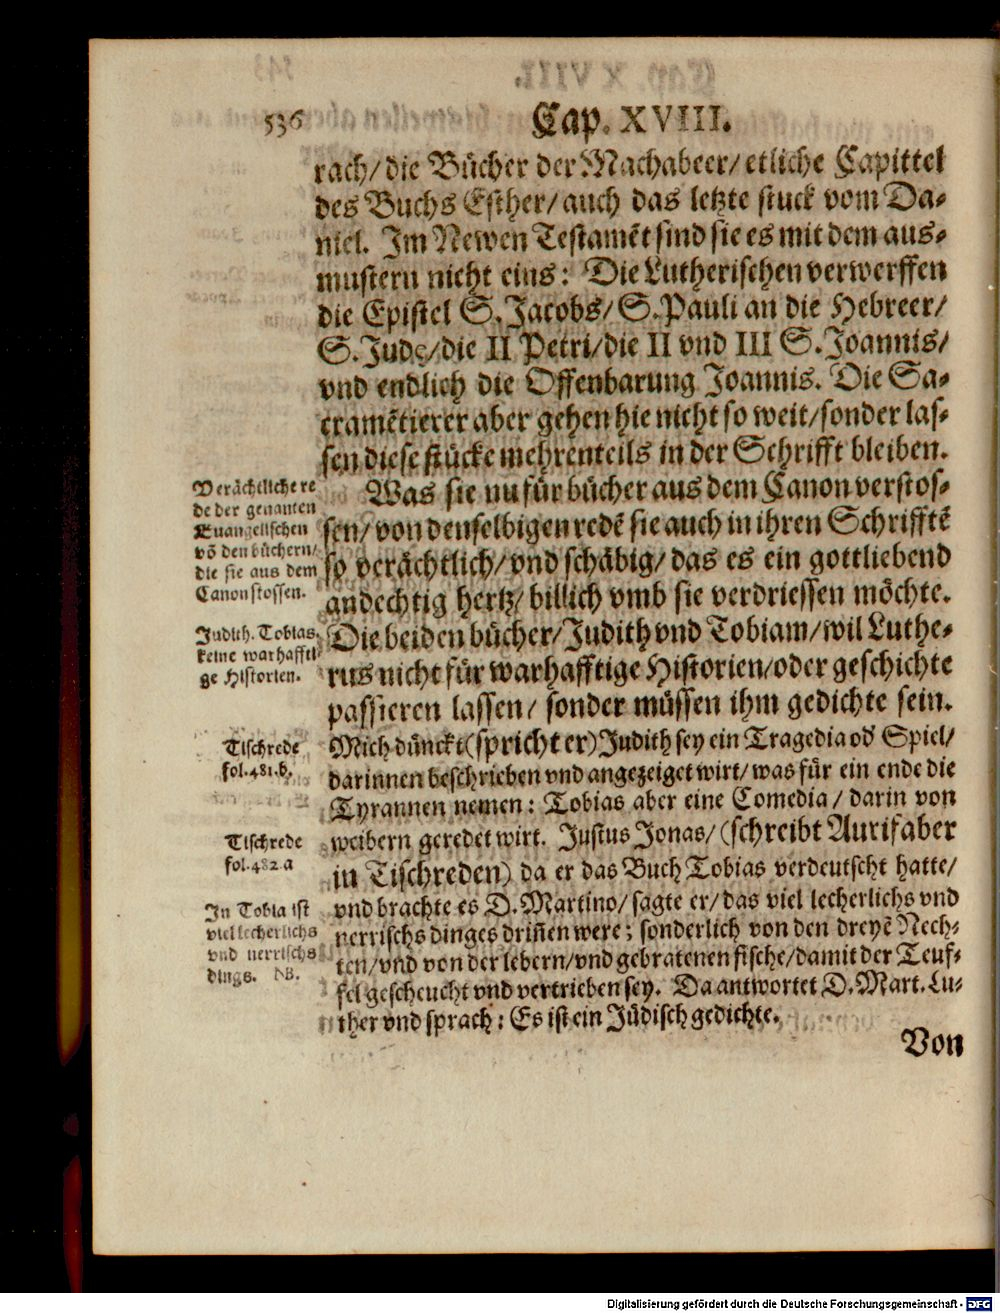 536 Cap. XVIII.
rach/ die Bücher der Machabeer/ etliche Capittel
des Buchs Esther/ auch das letzte stuck vom Da-
niel. Im Newen Testamēt sind sie es mit dem aus-
mustern nicht eins: Die Lutherischen verwerffen
die Epistel S. Jacobs/ S. Pauli an die Hebreer/
S. Jude/ die II Petri/ die II vnd III S. Joannis/
vnd endlich die Offenbarung Joannis. Die Sa-
cramētierer aber gehen hie nicht so weit/ sonder las-
sen diese stücke mehrenteils in der Schrifft bleiben.
Verächtliche re
de der genanten
Euangelischen
vō den büchern/
die sie aus dem
Canon stossen.
Was sie nu für bücher aus dem Canon verstos-
sen/ von denselbigen redē sie auch in ihren Schrifftē
so verächtlich/ vnd schäbig/ das es ein gottliebend
andechtig hertz/ billich vmb sie verdriessen möchte.
Judith. Tobias,
keine warhaffti
ge Historien.
Die beiden bücher/ Judith vnd Tobiam/ wil Luthe-
rus nicht für warhafftige Historien/ oder geschichte
passieren lassen/ sonder müssen ihm gedichte sein.
Tischrede
fol. 481. b.
Mich dünckt (spricht er) Judith sey ein Tragedia od' Spiel/
darinnen beschrieben vnd angezeiget wirt/ was für ein ende die
Tyrannen nemen: Tobias aber eine Comedia/ darin von
Tischrede
fol. 482 a
weibern geredet wirt. Justus Jonas/ (schreibt Aurifaber
in Tischreden) da er das Buch Tobias verdeutscht hatte/
In Tobia ist
viel lecherlichs
vnd nerrischs
dings. NB.
vnd brachte es D. Martino/ sagte er/ das viel lecherlichs vnd
nerrischs dinges drinen were; sonderlich von den dreyē Nech-
ten/ vnd von der lebern/ vnd gebratenen fische/ damit der Teuf-
fel gescheucht vnd vertrieben sey. Da antwortet D. Mart. Lu-
ther vnd sprach: Es ist ein Jüdisch gedichte.
Von
Digitalisierung gefördert durch die Deutsche Forschungsgemeinschaft - DFG